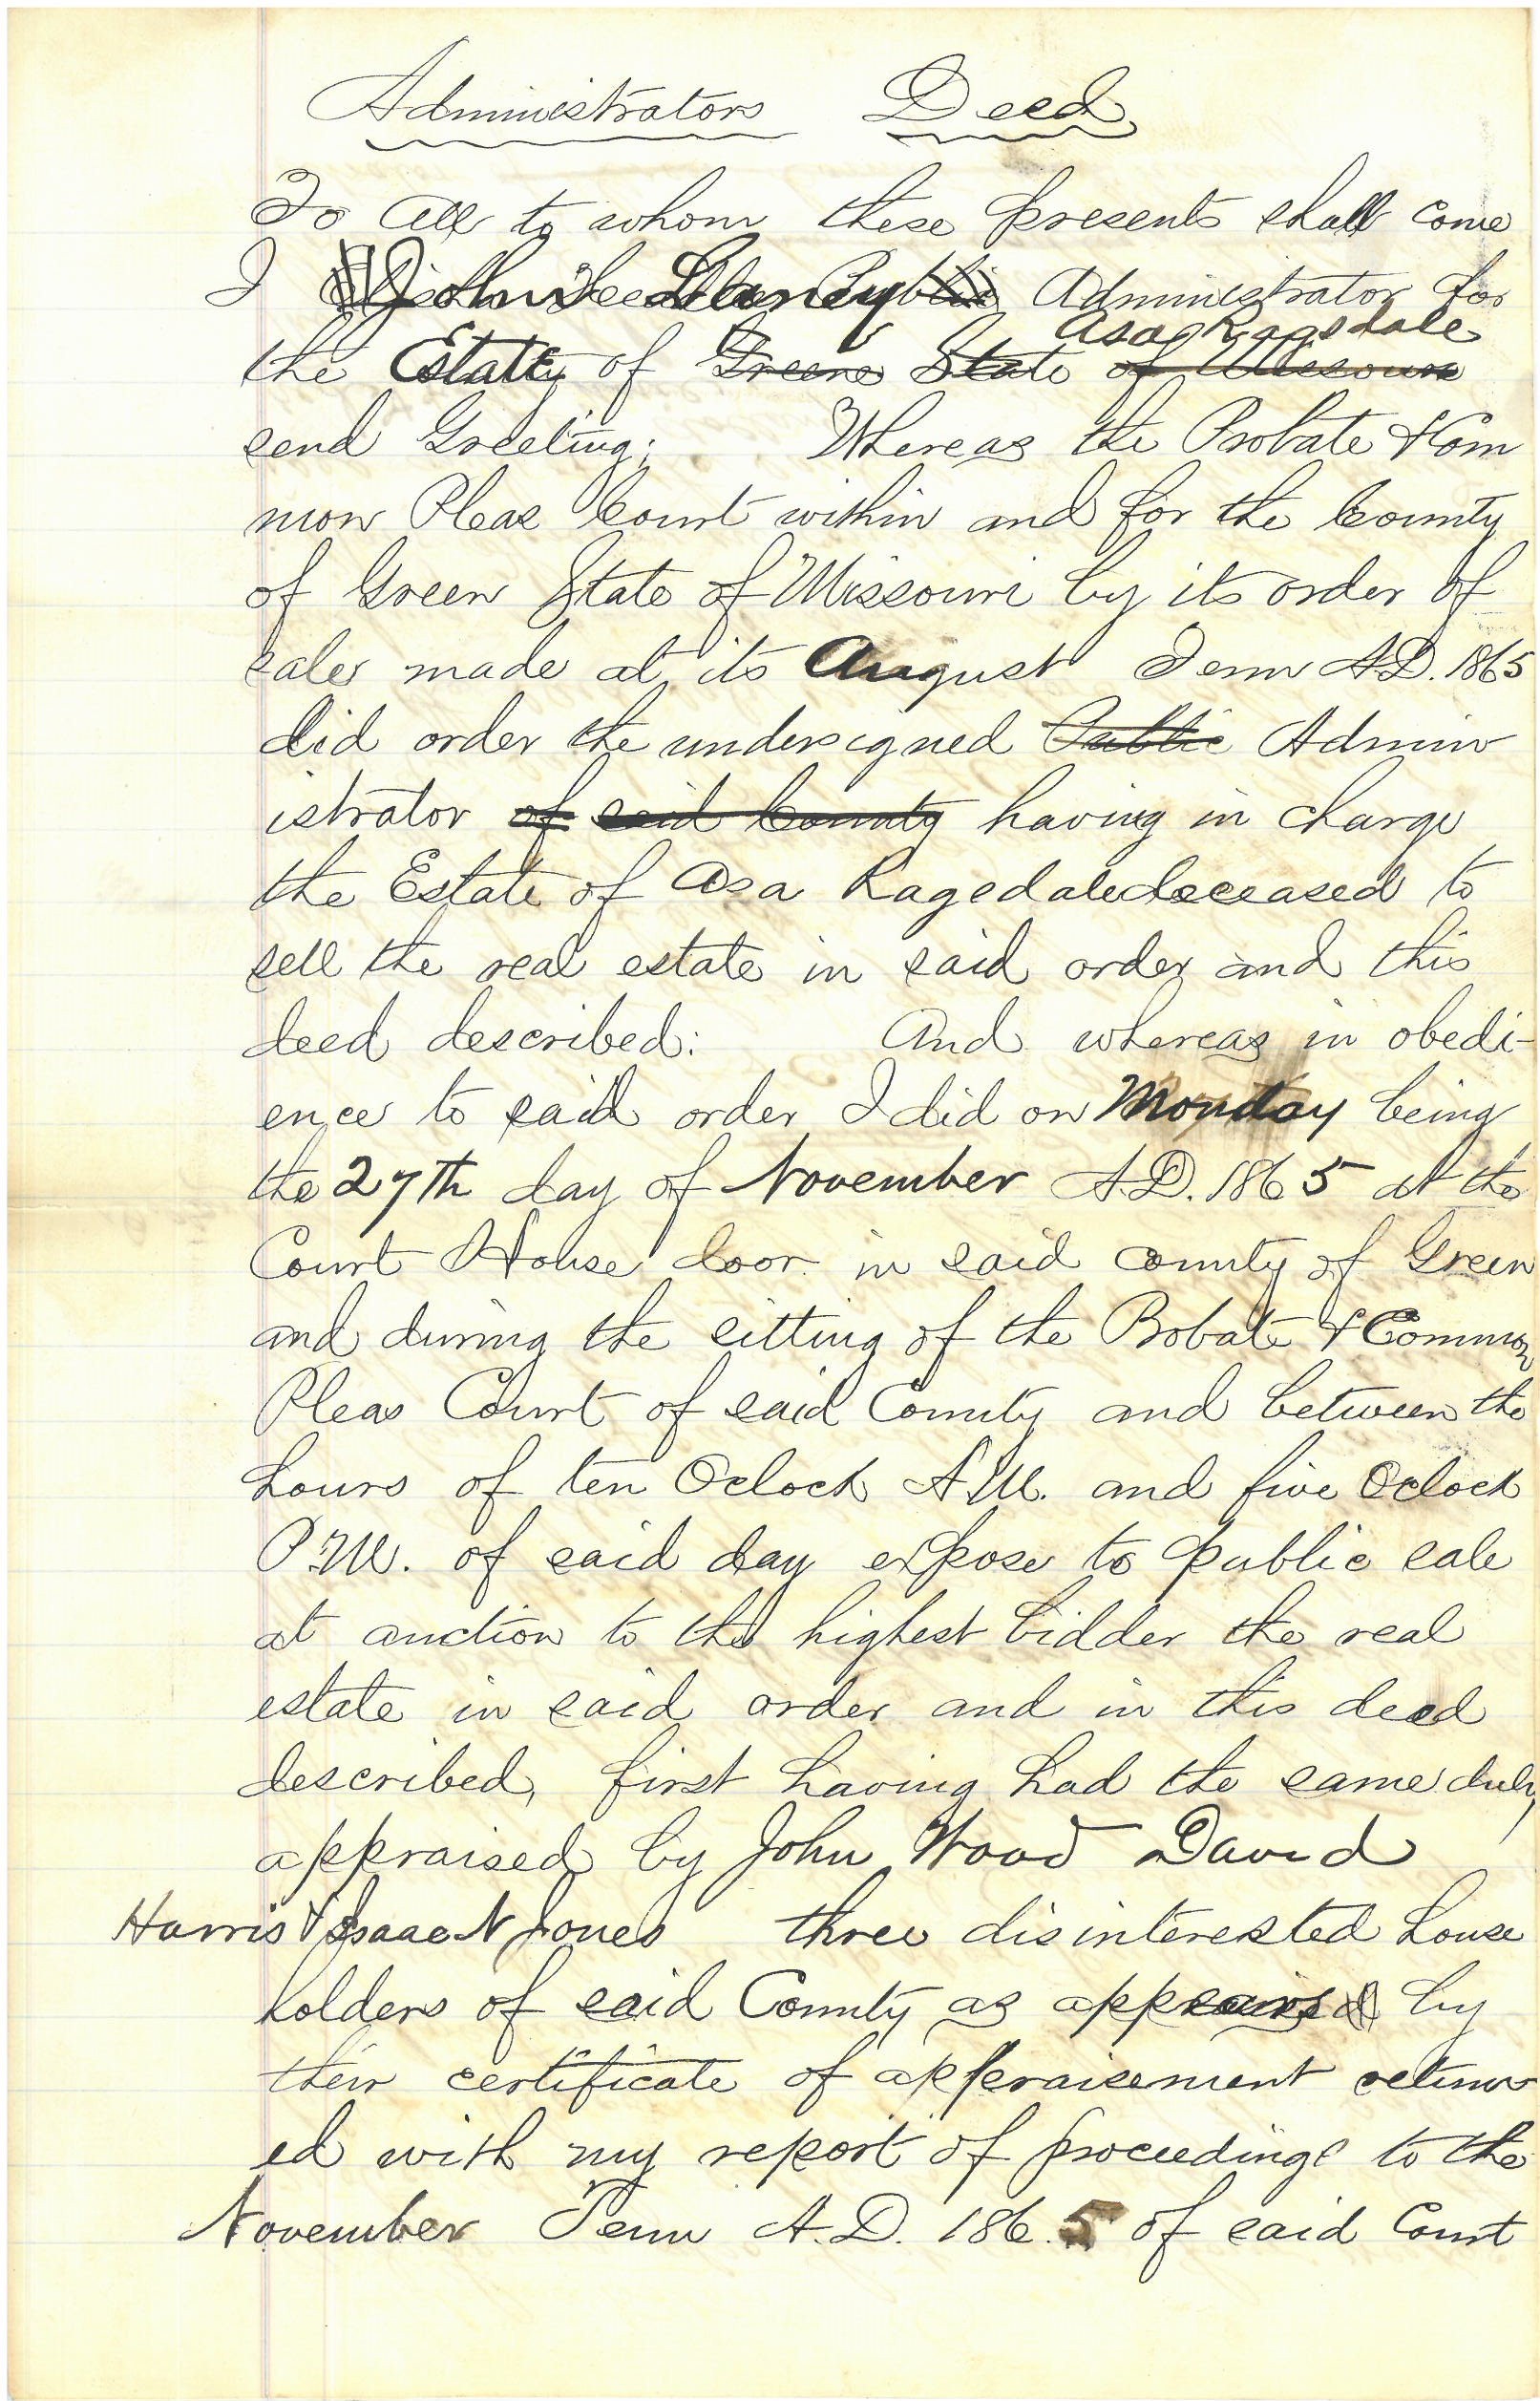 Administrators Deed
To All to whom these presents shall come
I John Laney Administrator for
Asa Ragsdale
the Estate of Greene State of Missouri
send Greeting; Whereas the Probate & Com
mon Pleas Court within and for the County
of Green State of Missouri by its order of
sale made at its August Term A.D. 1865
did order the undersigned Public Admin
istrator of said County having in charge
the Estate of Asa Ragsdale deceased to
sell the real estate in said order and this
deed described: And whereas in obedi-
ence to said order I did on Monday being
the 27th day of November A.D. 1865 at the
Court House door in said county of Green
and during the sitting of the Probate & Common
Pleas Court of said County and between the
hours of ten Oclock A.M. and five Oclock
P.M. of said day expose to public sale
at auction to the highest bidder the real
estate in said order and in this deed
described, first having had the same duly
appraised by John Wood David
Harris & Isaac N Jones three disinterested house
holders of said County as appears by
their certificate of appraisement return
ed with my report of proceedings to the
November Term A.D. 1865 of said Court